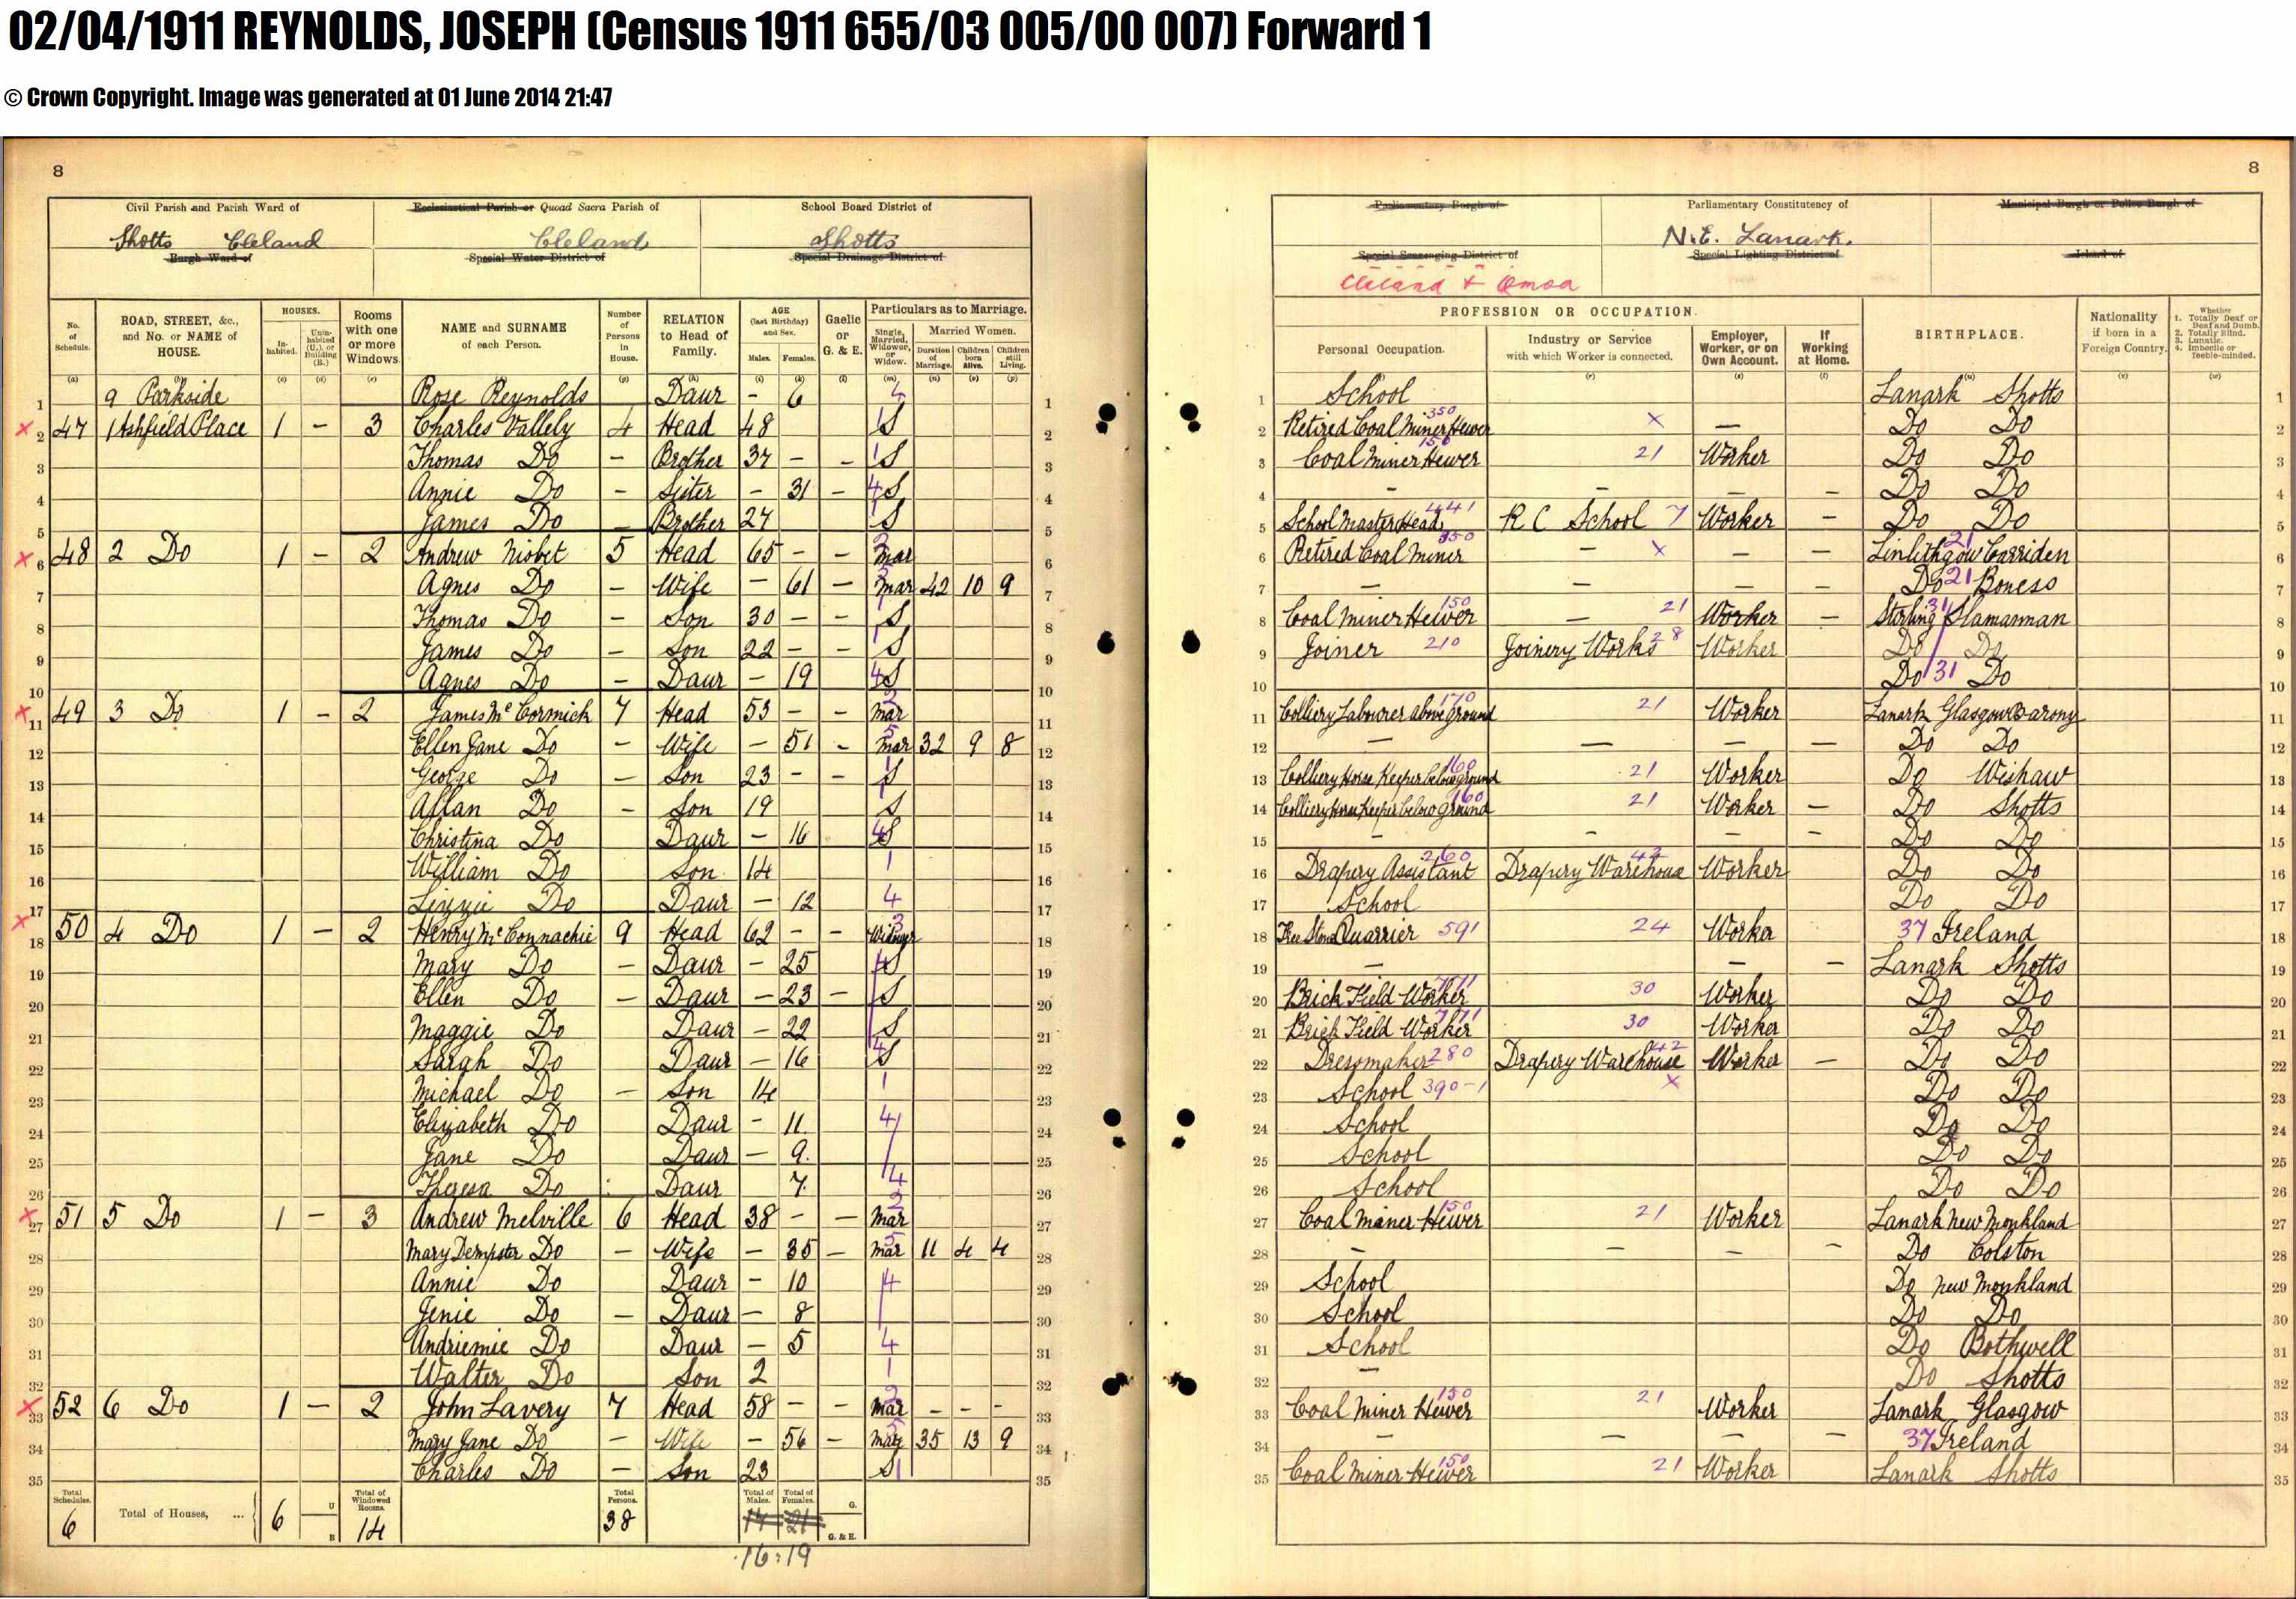 02/04/1911 REYNOLDS, JOSEPH (Census 1911 655/03 005/00 007) Forward 1
© Crown Copyright. Image was generated at 01 June 2014 21:47
8
8
Civil Parish and Parish Ward of
Shotts Cleland
Burgh Ward of
Ecclesiastical Parish or Quoad Sacra Parish of
Cleland
Special Water District of
School Board District of
Shotts
Special Drainage District of
Parliamentary Burgh of
Special Scavenging District of
Cleland & Omoa
Parliamentary Constituency of
N.E. Lanark.
Special Lighting District of
Municipal Burgh or Police Burgh of
Island of
No. of Schedule.
ROAD, STREET, &c., and No. or NAME of HOUSE.
HOUSES.
In-habited.
Unin-habited (U.), or Building (B.)
Rooms with one or more Windows.
NAME and SURNAME of each Person.
Number of Persons in House.
RELATION to Head of Family.
AGE (last Birthday) and Sex.
Males. Females.
Gaelic or G. & E.
Particulars as to Marriage.
Single, Married, Widower, or Widow.
Married Women.
Duration of Marriage. Children born Alive. Children still Living.
PROFESSION OR OCCUPATION.
Personal Occupation.
Industry or Service with which Worker is connected.
Employer, Worker, or on Own Account.
If Working at Home.
BIRTHPLACE.
Nationality if born in a Foreign Country.
Whether
1. Totally Deaf or Deaf and Dumb.
2. Totally Blind.
3. Lunatic.
4. Imbecile or feeble-minded.
1 9 Parkside Rose Reynolds Daur - 6 4 1 School Lanark Shotts 1
2 47 1 Ashfield Place 1 - 3 Charles Vallely 4 Head 48 S 2 Retired Coal Miner Hewer 350 × — Do Do 2
3 Thomas Do - Brother 37 - - S 3 Coal Miner Hewer 150 21 Worker Do Do 3
4 Annie Do - Sister - 31 - 4 S 4 - - - - Do Do 4
5 James Do - Brother 27 S 5 School Master Head 441 R C School 7 Worker - Do Do 5
6 48 2 Do 1 - 2 Andrew Nisbet 5 Head 65 - - Mar 6 Retired Coal Miner 350 - × - - Linlithgow Carriden 21 6
7 Agnes Do - Wife - 61 - Mar 42 10 9 7 - - - - Do 21 Boness 7
8 Thomas Do - Son 30 - - S 8 Coal Miner Hewer 150 - 21 Worker - Stirling 31 Slamannan 8
9 James Do - Son 22 - - S 9 Joiner 210 Joinery Works 28 Worker Do Do 9
10 Agnes Do - Daur - 19 4 S 10 Do 31 Do 10
11 49 3 Do 1 - 2 James McCormick 7 Head 53 - - Mar 11 Colliery Labourer above ground 170 21 Worker Lanark Glasgow Barony 11
12 Ellen Jane Do - Wife - 51 - Mar 32 9 8 12 - - - - Do Do 12
13 George Do - Son 23 - - S 13 Colliery Horse Keeper below ground 160 21 Worker Do Wishaw 13
14 Allan Do - Son 19 S 14 Colliery Horse Keeper below ground 160 21 Worker - Do Shotts 14
15 Christina Do Daur - 16 4 S 15 - - - - Do Do 15
16 William Do Son 14 1 16 Drapery Assistant 260 Drapery Warehouse 42 Worker Do Do 16
17 Lizzie Do Daur - 12 4 17 School Do Do 17
18 50 4 Do 1 - 2 Henry McConnachie 9 Head 62 - - Widower 3 18 Free Stone Quarrier 591 24 Worker 37 Ireland 18
19 Mary Do - Daur - 25 4 S 19 - - - Lanark Shotts 19
20 Ellen Do - Daur - 23 - S 20 Brick Field Worker 30 Worker Do Do 20
21 Maggie Do Daur - 22 S 21 Brick Field Worker 30 Worker Do Do 21
22 Sarah Do Daur - 16 4 S 22 Dressmaker 280 Drapery Warehouse 42 Worker - Do Do 22
23 Michael Do - Son 14 1 23 School 390-1 × Do Do 23
24 Elizabeth Do Daur - 11 4 24 School Do Do 24
25 Jane Do Daur - 9 25 School Do Do 25
26 Theresa Do Daur 7 4 26 School Do Do 26
27 51 5 Do 1 - 3 Andrew Melville 6 Head 38 - - Mar 2 27 Coal Miner Hewer 150 21 Worker Lanark New Monkland 27
28 Mary Dempster Do - Wife - 35 - Mar 5 11 4 4 28 - - - - Do Colston 28
29 Annie Do Daur - 10 4 29 School Do New Monkland 29
30 Jenie Do - Daur - 8 30 School Do Do 30
31 Andriemie Do Daur - 5 4 31 School Do Bothwell 31
32 Walter Do Son 2 1 32 - Do Shotts 32
33 52 6 Do 1 - 2 John Lavery 7 Head 58 - - Mar 2 - - - 33 Coal Miner Hewer 150 21 Worker Lanark Glasgow 33
34 Mary Jane Do - Wife - 56 - Mar 5 35 13 9 34 - - - - 37 Ireland 34
35 Charles Do - Son 23 S 1 35 Coal Miner Hewer 150 21 Worker Lanark Shotts 35
Total Schedules. 6
Total of Houses, ... 6 U B
Total of Windowed Rooms. 14
Total Persons. 38
Total of Males. 14 Total of Females. 21
G. G. & E.
16:19